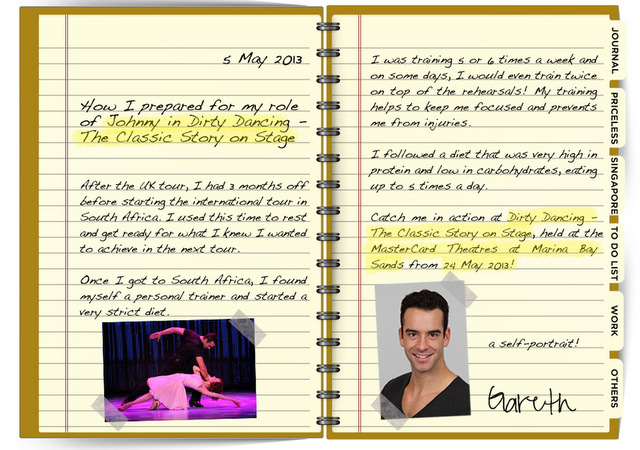 5 May 2013
How I prepared for my role
of Johnny in Dirty Dancing –
The Classic Story on Stage
After the UK tour, I had 3 months off
before starting the international tour in
South Africa. I used this time to rest
and get ready for what I knew I wanted
to achieve in the next tour.
Once I got to South Africa, I found
myself a personal trainer and started a
very strict diet.
I was training 5 or 6 times a week and
on some days, I would even train twice
on top of the rehearsals! My training
helps to keep me focused and prevents
me from injuries.
I followed a diet that was very high in
protein and low in carbohydrates, eating
up to 5 times a day.
Catch me in action at Dirty Dancing –
The Classic Story on Stage, held at the
MasterCard Theatres at Marina Bay
Sands from 24 May 2013!
a self-portrait!
Gareth
JOURNAL
PRICELESS
SINGAPORE
TO DO LIST
WORK
OTHERS